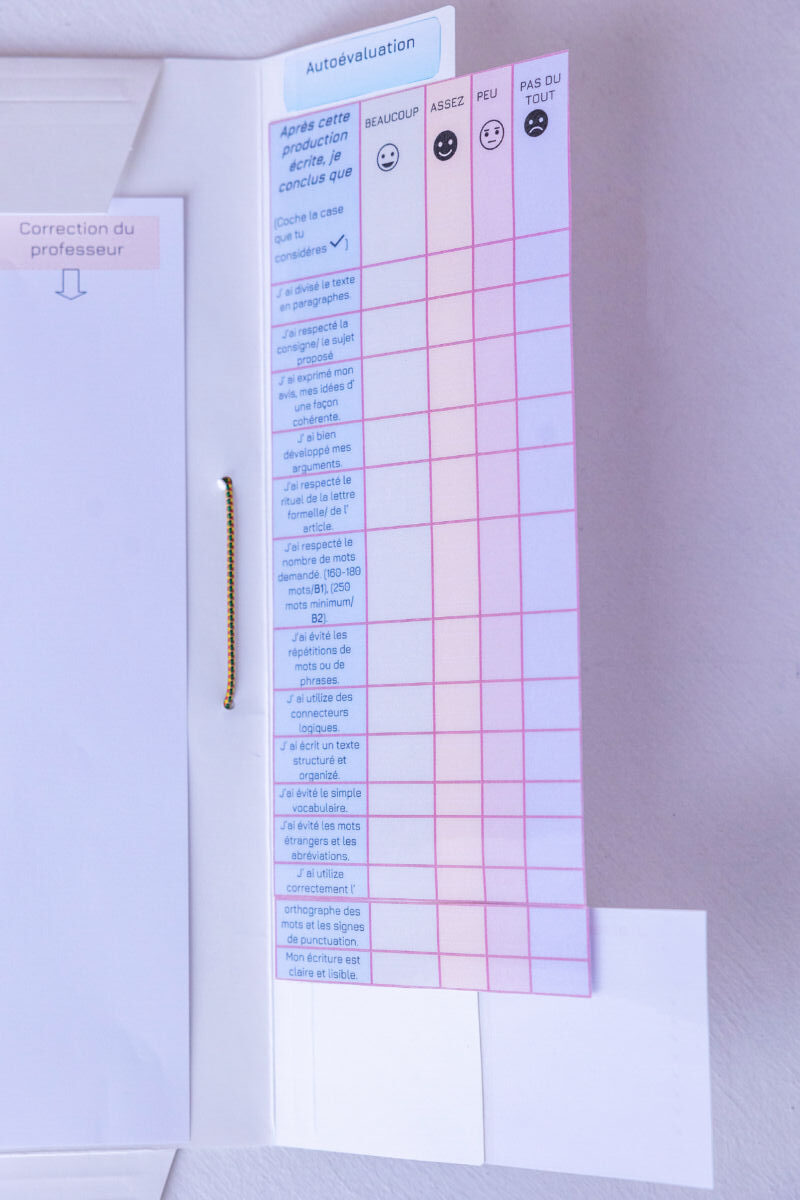 Autoévaluation
Après cette
production
écrite, je
conclus que
(Coche la case
que tu
considères ✓)
BEAUCOUP
ASSEZ
PEU
PAS DU
TOUT
J' ai divisé le texte
en paragraphes.
J'ai respecté la
consigne/ le sujet
proposé
J' ai exprimé mon
avis, mes idées d'
une façon
cohérente.
J' ai bien
développé mes
arguments.
J'ai respecté le
rituel de la lettre
formelle/ de l'
article.
J'ai respecté le
nombre de mots
demandé. (160-180
mots/B1), (250
mots minimum/
B2).
J'ai évité les
répétitions de
mots ou de
phrases.
J' ai utilize des
connecteurs
logiques.
J' ai écrit un texte
structuré et
organizé.
J'ai évité le simple
vocabulaire.
J'ai évité les mots
étrangers et les
abréviations.
J' ai utilize
correctement l'
orthographe des
mots et les signes
de punctuation.
Mon écriture est
claire et lisible.
Correction du
professeur